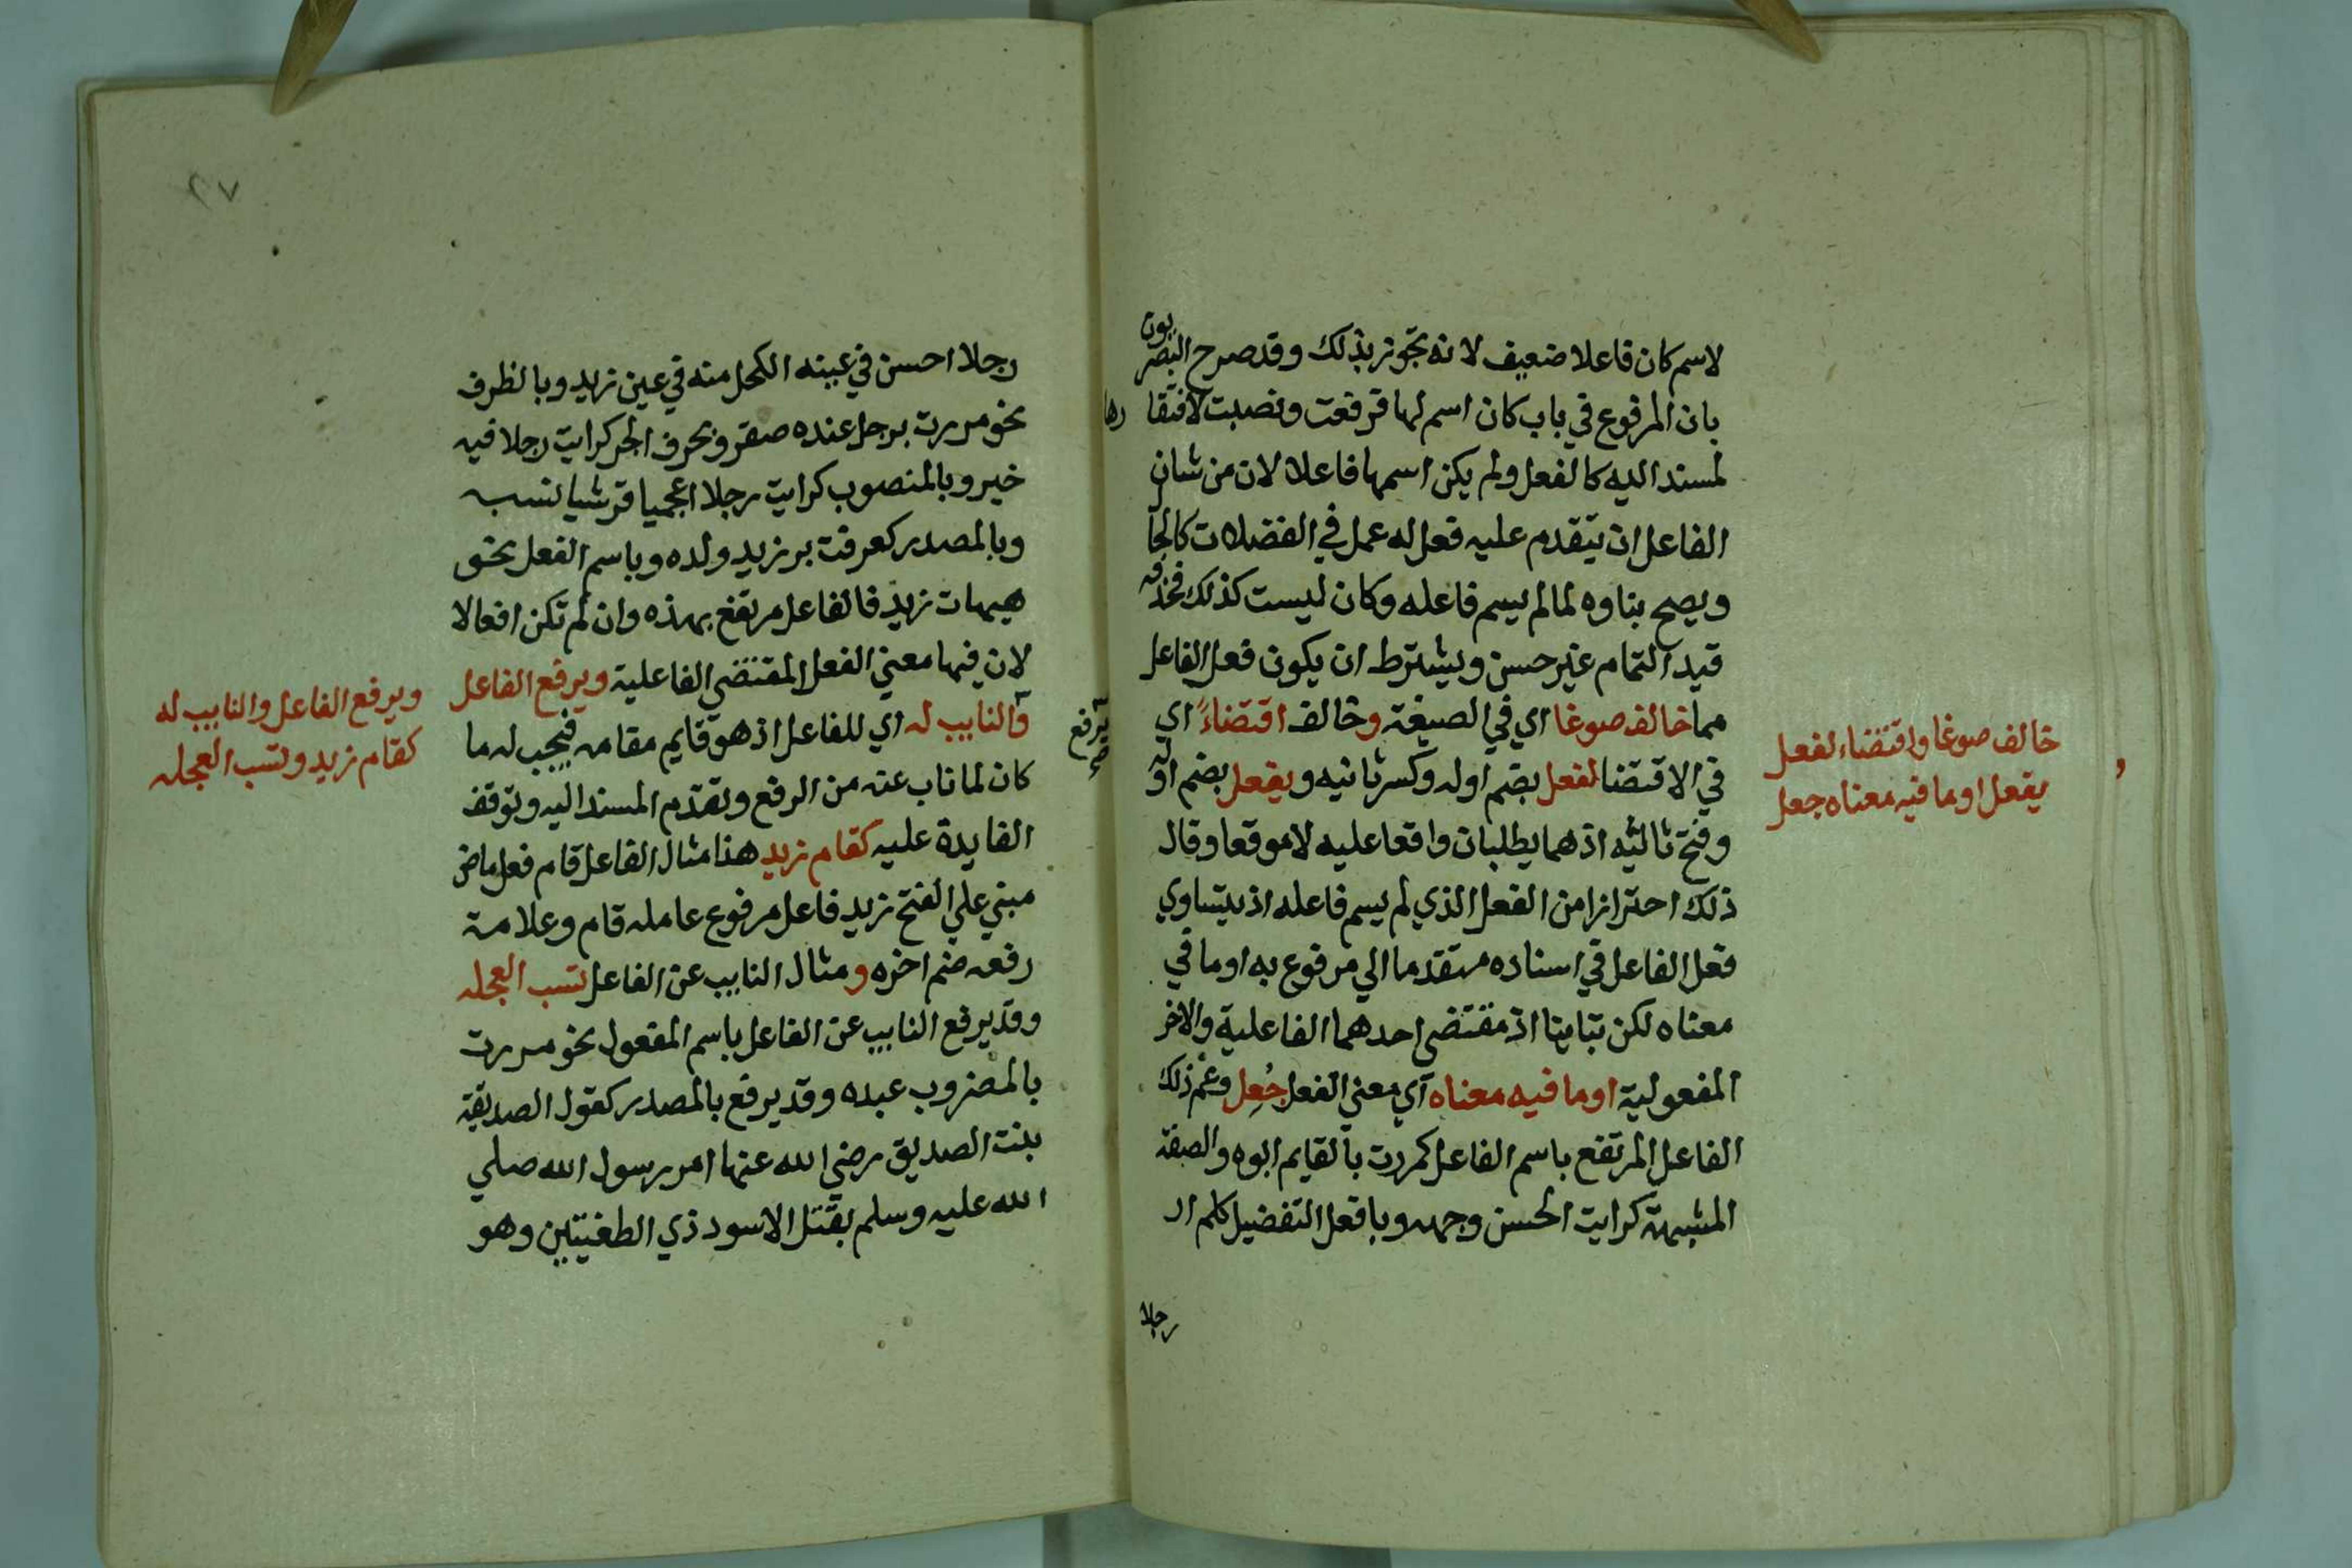 لاسم كان فاعلا ضعيف لانه تجوز بذلك وقد صرح البصريون
بان المرفوع في باب كان اسم لها فرفعت ونصبت لافتقارها
لمسند اليه كالفعل ولم يكن اسمها فاعلا لان من شان
الفاعل ان يتقدم عليه فعل له عمل في الفضلات كالحال
ويصح بناوه لما لم يسم فاعله وكان ليست كذلك فحذفه
قيد التمام غير حسن ويشترط ان يكون فعل الفاعل
مما خالف صوغا اي في الصيغة وخالف اقتضاءً اي
في الاقتضا لفعل بضم اوله وكسر ثانيه ويفعل بضم اوله
وفتح ثالثه اذ هما يطلبان واقعا عليه لا موقعا وقال
ذلك احترازا من الفعل الذي لم يسم فاعله اذ يتساوي
فعل الفاعل في اسناده متقدما الي مرفوع به او ما في
معناه لكن تباينا اذ مقتضي احدهما الفاعلية والاخر
المفعولية او ما فيه معناه اي معني الفعل جُعِل وعم ذلك
الفاعل المرتفع باسم الفاعل كمررت بالقايم ابوه والصفة
المشبهة كرايت الحسن وجهه وبافعل التفضيل كلم ار
رجلا
خالف صوغا واقتضاء لفعل
يفعل او ما فيه معناه جعل
٢٧
رجلا احسن في عينه الكحل منه في عين زيد وبالظرف
نحو مررت برجل عنده صقر وبحرف الجر كرايت رجلا فيه
خير وبالمنصوب كرايت رجلا اعجميا قرشيا نسبه
وبالمصدر كعرفت بر زيد ولده وباسم الفعل نحو
هيهات زيد فالفاعل مرتفع بهذه وان لم تكن افعالا
لان فيها معني الفعل المقتضي الفاعلية ويرفع الفاعل
والنايب له اي للفاعل اذ هو قايم مقامه فيجب له ما
كان لما ناب عنه من الرفع وتقدم المسند اليه وتوقف
الفايدة عليه كقام زيد هذا مثال الفاعل قام فعل ماض
مبني علي الفتح زيد فاعل مرفوع عامله قام وعلامة
رفعه ضم اخره ومثال النايب عن الفاعل تسب العجله
وقد يرفع النايب عن الفاعل باسم المفعول نحو مررت
بالمضروب عبده وقد يرفع بالمصدر كقول الصديقة
بنت الصديق رضي الله عنها امر رسول الله صلي
الله عليه وسلم بقتل الاسود ذي الطفيتين وهو
يرفع
ويرفع الفاعل والنايب له
كقام زيد وتسب العجله